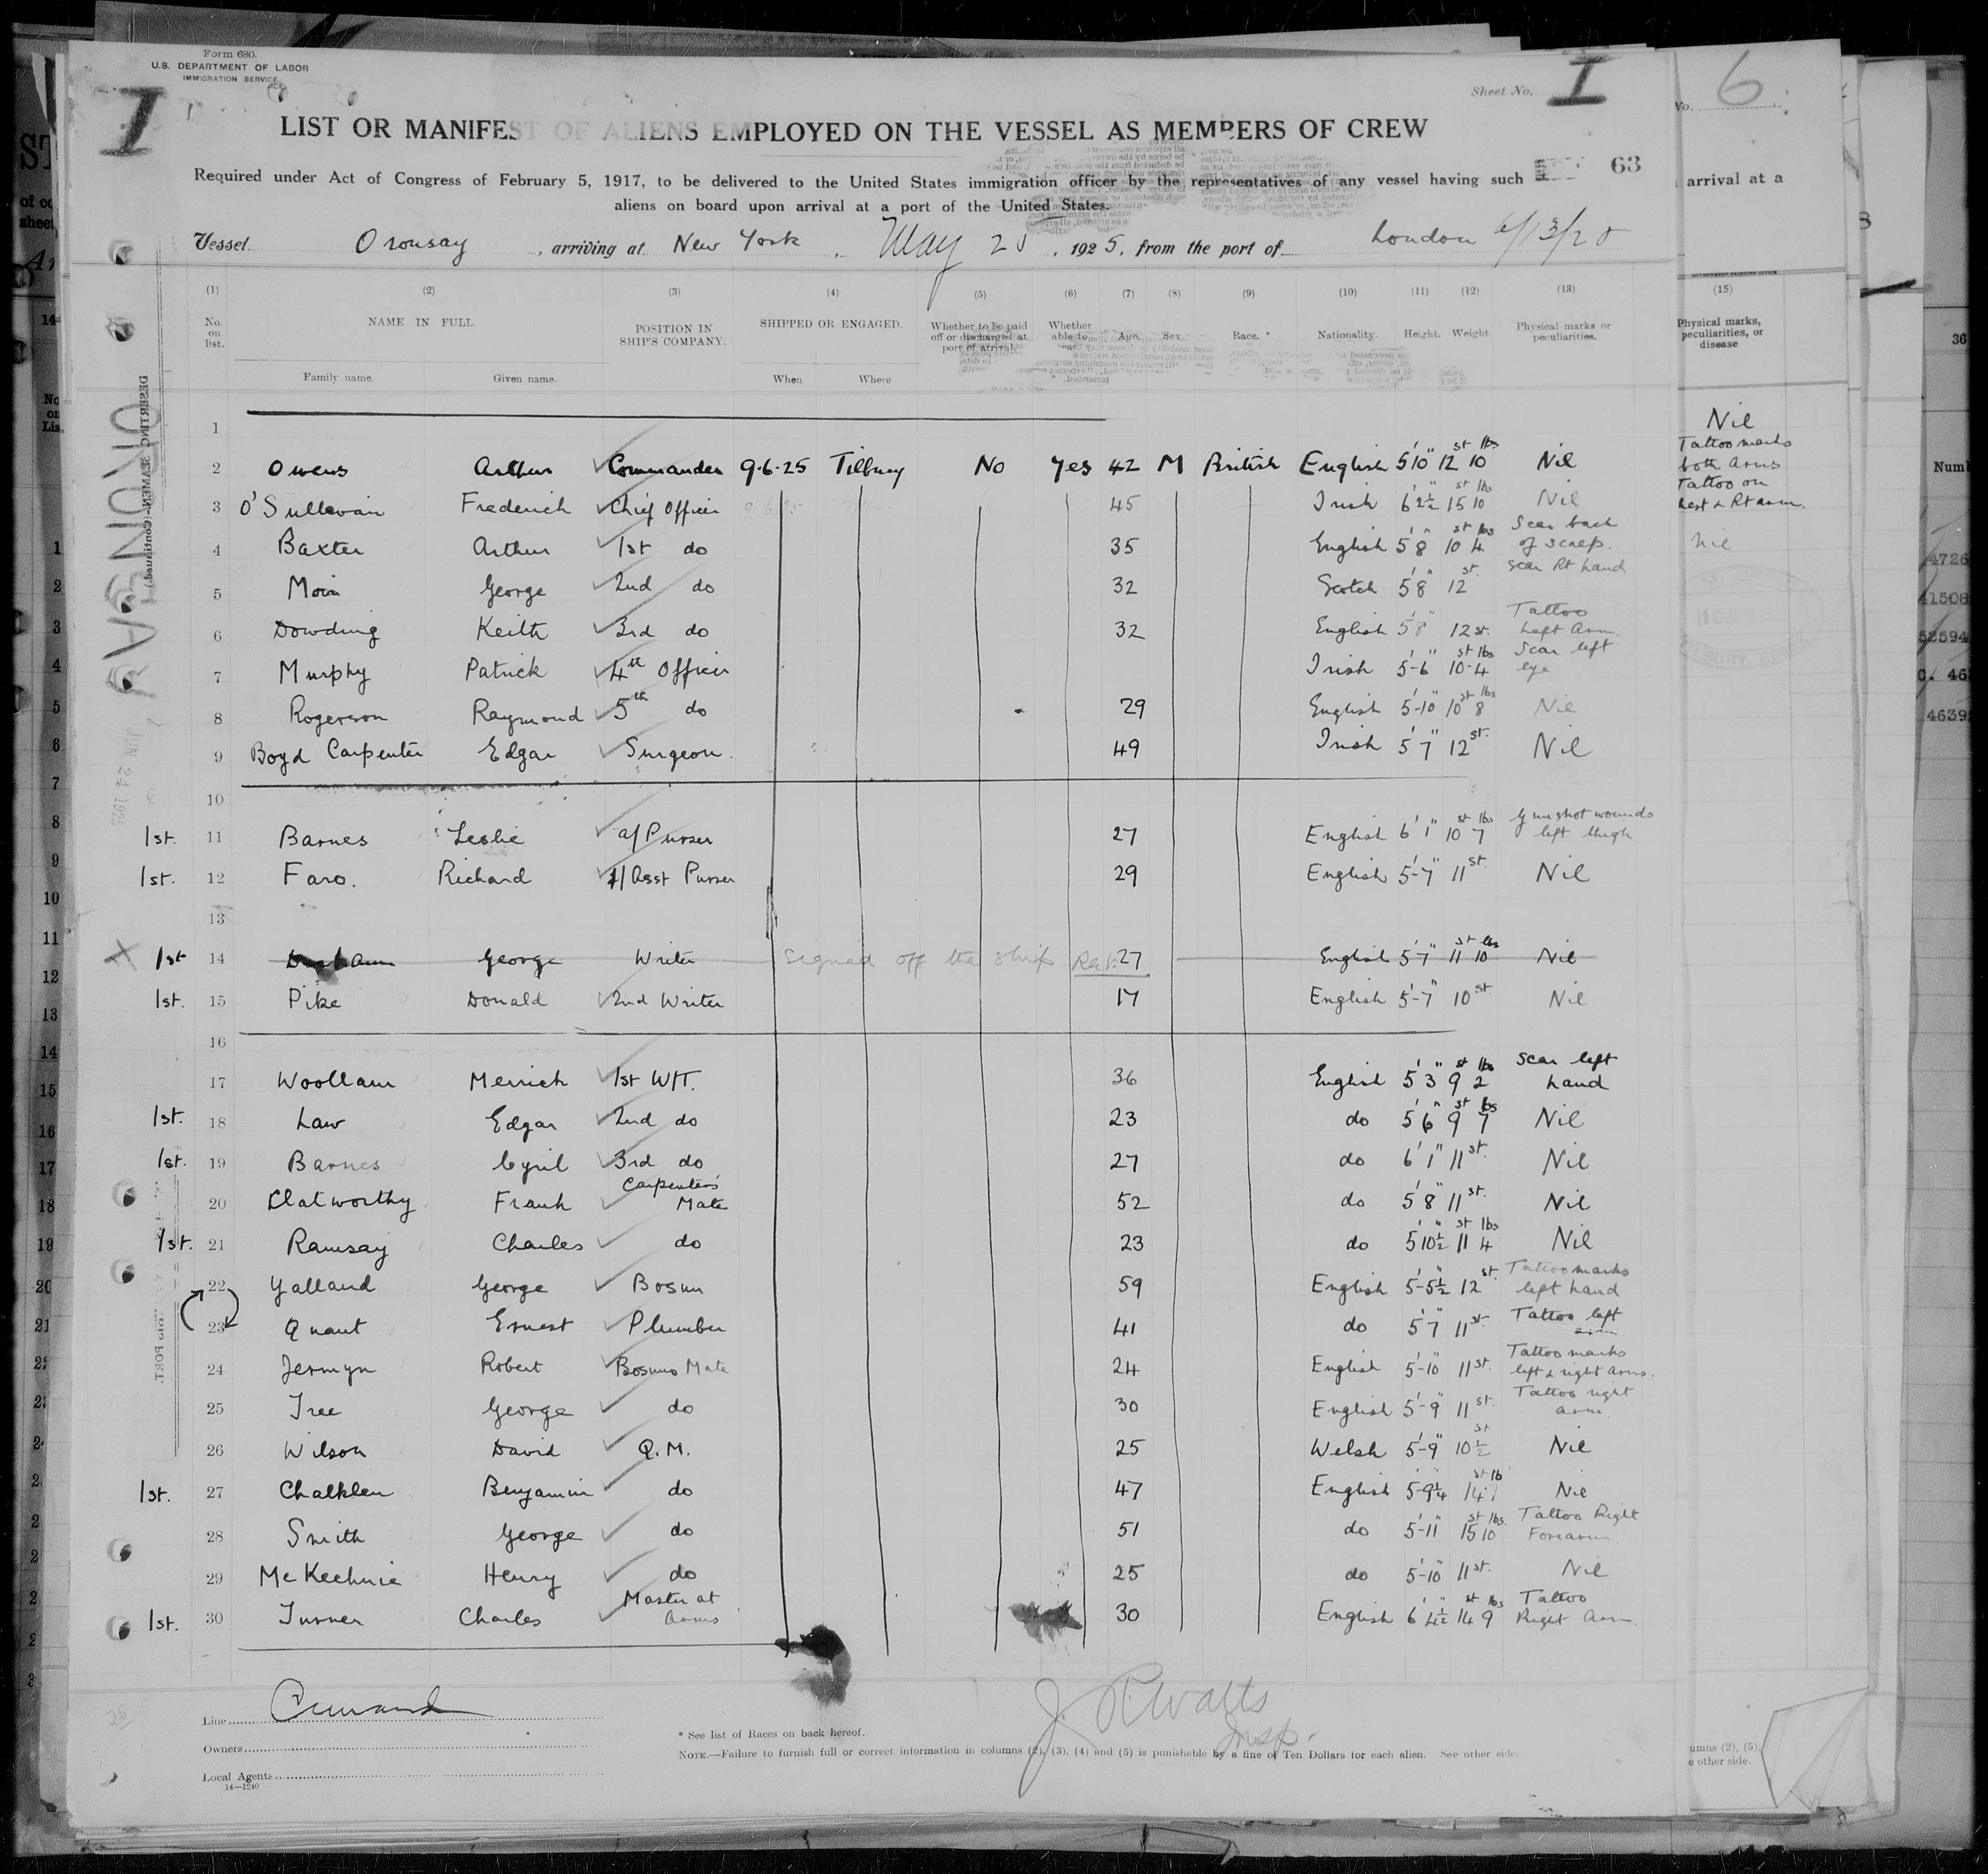 Form 680.
U.S. DEPARTMENT OF LABOR
IMMIGRATION SERVICE
I
Sheet No. I
LIST OR MANIFEST OF ALIENS EMPLOYED ON THE VESSEL AS MEMBERS OF CREW
63
Required under Act of Congress of February 5, 1917, to be delivered to the United States immigration officer by the representatives of any vessel having such
aliens on board upon arrival at a port of the United States.
Vessel Oronsay, arriving at New York, May 25, 1925, from the port of London 6/13/25
(1) (2) (3) (4) (5) (6) (7) (8) (9) (10) (11) (12) (13)
No. on list. NAME IN FULL. POSITION IN SHIP'S COMPANY. SHIPPED OR ENGAGED. Whether to be paid off or discharged at port of arrival. Whether able to Age. Sex. Race.* Nationality. Height. Weight. Physical marks or peculiarities.
Family name. Given name. When Where
1
2 Owens Arthur Commander 9.6.25 Tilbury No Yes 42 M British English 5'10" 12 st 10 lbs Nil
3 O'Sullevan Frederick Chief Officer 45 Irish 6'2½" 15 st 10 lbs Nil
4 Baxter Arthur 1st do 35 English 5'8" 10 st 4 lbs Scar back of scalp.
5 Moir George 2nd do 32 Scotch 5'8" 12 st. Scar Rt hand
6 Dowding Keith 3rd do 32 English 5'8" 12 st. Tattoo Left Arm.
7 Murphy Patrick 4th Officer Irish 5'-6" 10-4 st lbs Scar left eye
8 Rogerson Raymond 5th do 29 English 5'-10" 10 st 8 lbs Nil
9 Boyd Carpenter Edgar Surgeon. 49 Irish 5'7" 12 st. Nil
10
1st. 11 Barnes Leslie a/Purser 27 English 6'1" 10 st 7 lbs Gunshot wounds left thigh
1st. 12 Faro. Richard 1/Asst Purser 29 English 5'-7" 11 st. Nil
13
X 1st 14 George Writer Signed off the ship 27 English 5'-7" 11 st 10 lbs Nil
1st. 15 Pike Donald 2nd Writer 17 English 5'-7" 10 st. Nil
16
17 Woollam Merrick 1st W/T. 36 English 5'3" 9 st 2 lbs Scar left hand
1st. 18 Law Edgar 2nd do 23 do 5'6" 9 st 7 lbs Nil
1st. 19 Barnes Cyril 3rd do 27 do 6'1" 11 st. Nil
20 Clatworthy Frank Carpenters Mate 52 do 5'8" 11 st. Nil
1st. 21 Ramsay Charles do 23 do 5'10½" 11 st 4 lbs Nil
22 Yalland George Bosun 59 English 5'-5½" 12 st. Tattoo marks left hand
23 Quaut Ernest Plumber 41 do 5'7" 11 st. Tattoo left arm
24 Jermyn Robert Bosuns Mate 24 English 5'-10" 11 st. Tattoo marks left & right arms.
25 Tree George do 30 English 5'-9" 11 st. Tattoo right arm.
26 Wilson David Q.M. 25 Welsh 5'-9" 10½ st Nil
1st. 27 Chalklen Benjamin do 47 English 5'-9¼" 14.7 st lb Nil
28 Smith George do 51 do 5'-11" 15 st 10 lbs. Tattoo Right Forearm
29 McKechnie Henry do 25 do 5'-10" 11 st. Nil
1st. 30 Turner Charles Master at Arms 30 English 6'4½" 14 st 9 lbs Tattoo Right Arm.
Line Cunard
Owners
Local Agents
14—1240
* See list of Races on back hereof.
NOTE.—Failure to furnish full or correct information in columns (2), (3), (4) and (5) is punishable by a fine of Ten Dollars for each alien. See other side.
J. R. Watts
Insp.
ORONSAY
JUN 24 1925
No. 6
arrival at a
(15)
Physical marks, peculiarities, or disease
Nil
Tattoo marks
both arms
Tattoo on
Rt arm.
Nil
umns (2), (5),
e other side.